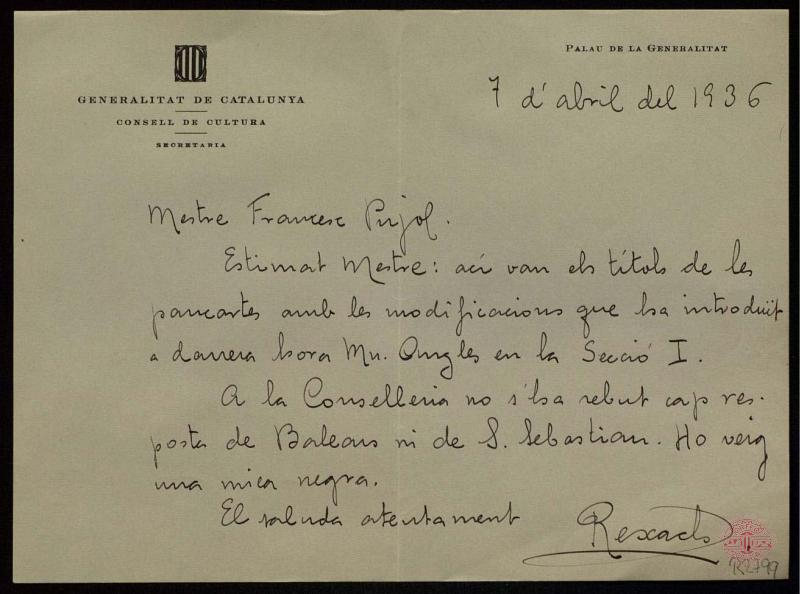 PALAU DE LA GENERALITAT
GENERALITAT DE CATALUNYA
CONSELL DE CULTURA
SECRETARIA
7 d'abril del 1936
Mestre Francesc Pujol.
Estimat Mestre: ací van els títols de les
pancartes amb les modificacions que ha introduït
a darrera hora Mn. Angles en la Secció I.
A la Conselleria no s'ha rebut cap res-
posta de Balears ni de S. Sebastian. Ho veig
una mica negra.
El saluda atentament
Rexachs
R2799